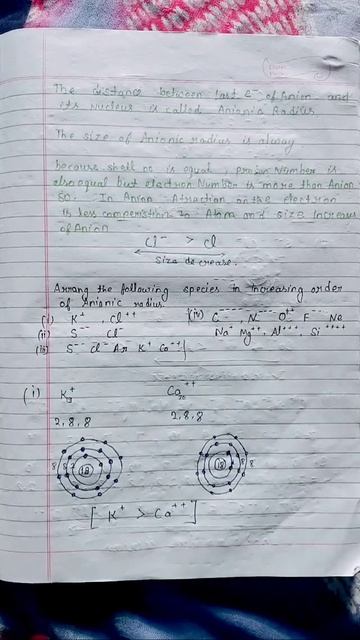 The distance between last e⁻ of Anion and
its Nucleus is called Anionic Radius
The size of Anionic radius is alway
because shell no is equal, proton Number is
also equal but electron Number is more than Anion
so. In Anion Atraction on the electron
is less to Atom and size Increases
of Anion
Cl⁻ > Cl
Size decrease.
Arrang the following species in Increasing order
of Anionic radius.
(i) K⁺ , Cl⁺⁺
(ii) S⁻⁻ Cl⁻
(iii) S⁻⁻ Cl⁻ Ar K⁺ Ca⁺⁺
(iv) C⁻⁻⁻⁻ N⁻⁻⁻ F⁻ Ne
Na⁺ Mg⁺⁺, Al⁺⁺⁺, Si⁺⁺⁺⁺
(i) K⁺ Ca₂₀⁺⁺
2, 8, 8 2, 8, 8
8 8
[ K⁺ > Ca⁺⁺ ]